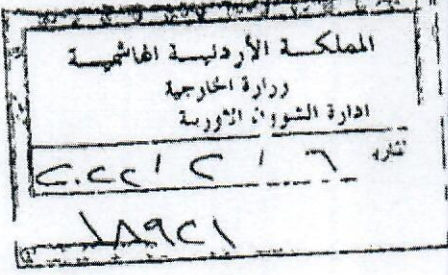 المملكة الأردنية الهاشمية
وزارة الخارجية
ادارة الشؤون الاوربية
٦ / ٢ / ٢٠٢٢
١٨٩٢١